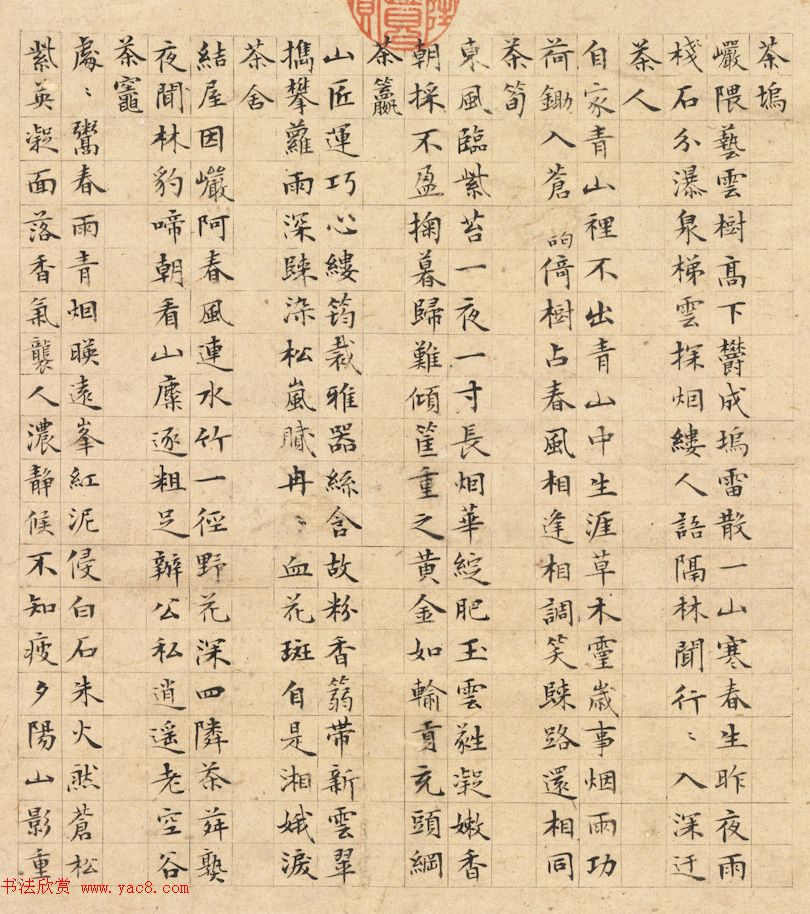 茶塢
巖隈藝雲樹高下欝成塢雷散一山寒春生昨夜雨
棧石分瀑泉梯雲探烟縷人語隔林聞行〻入深迂
茶人
自家青山裡不出青山中生涯草木靈歲事烟雨功
荷鋤入蒼倚樹占春風相逢相調笑歸路還相同
茶筍
東風臨紫苔一夜一寸長烟華綻肥玉雲蕤凝嫩香
朝採不盈掬暮歸難傾筐重之黃金如輸貢充頭綱
茶籝
山匠運巧心縷筠裁雅器絲含故粉香篛帶新雲翠
擕攀蘿雨深歸染松嵐膩冉〻血花斑自是湘娥淚
茶舍
結屋因巖阿春風連水竹一徑野花深四隣茶荈熟
夜聞林豹啼朝看山麋逐粗足辦公私逍遥老空谷
茶竈
處〻鬻春雨青烟暎遠峯紅泥侵白石朱火然蒼松
紫英凝面落香氣襲人濃靜候不知疲夕陽山影重
书法欣赏 www.yac8.com